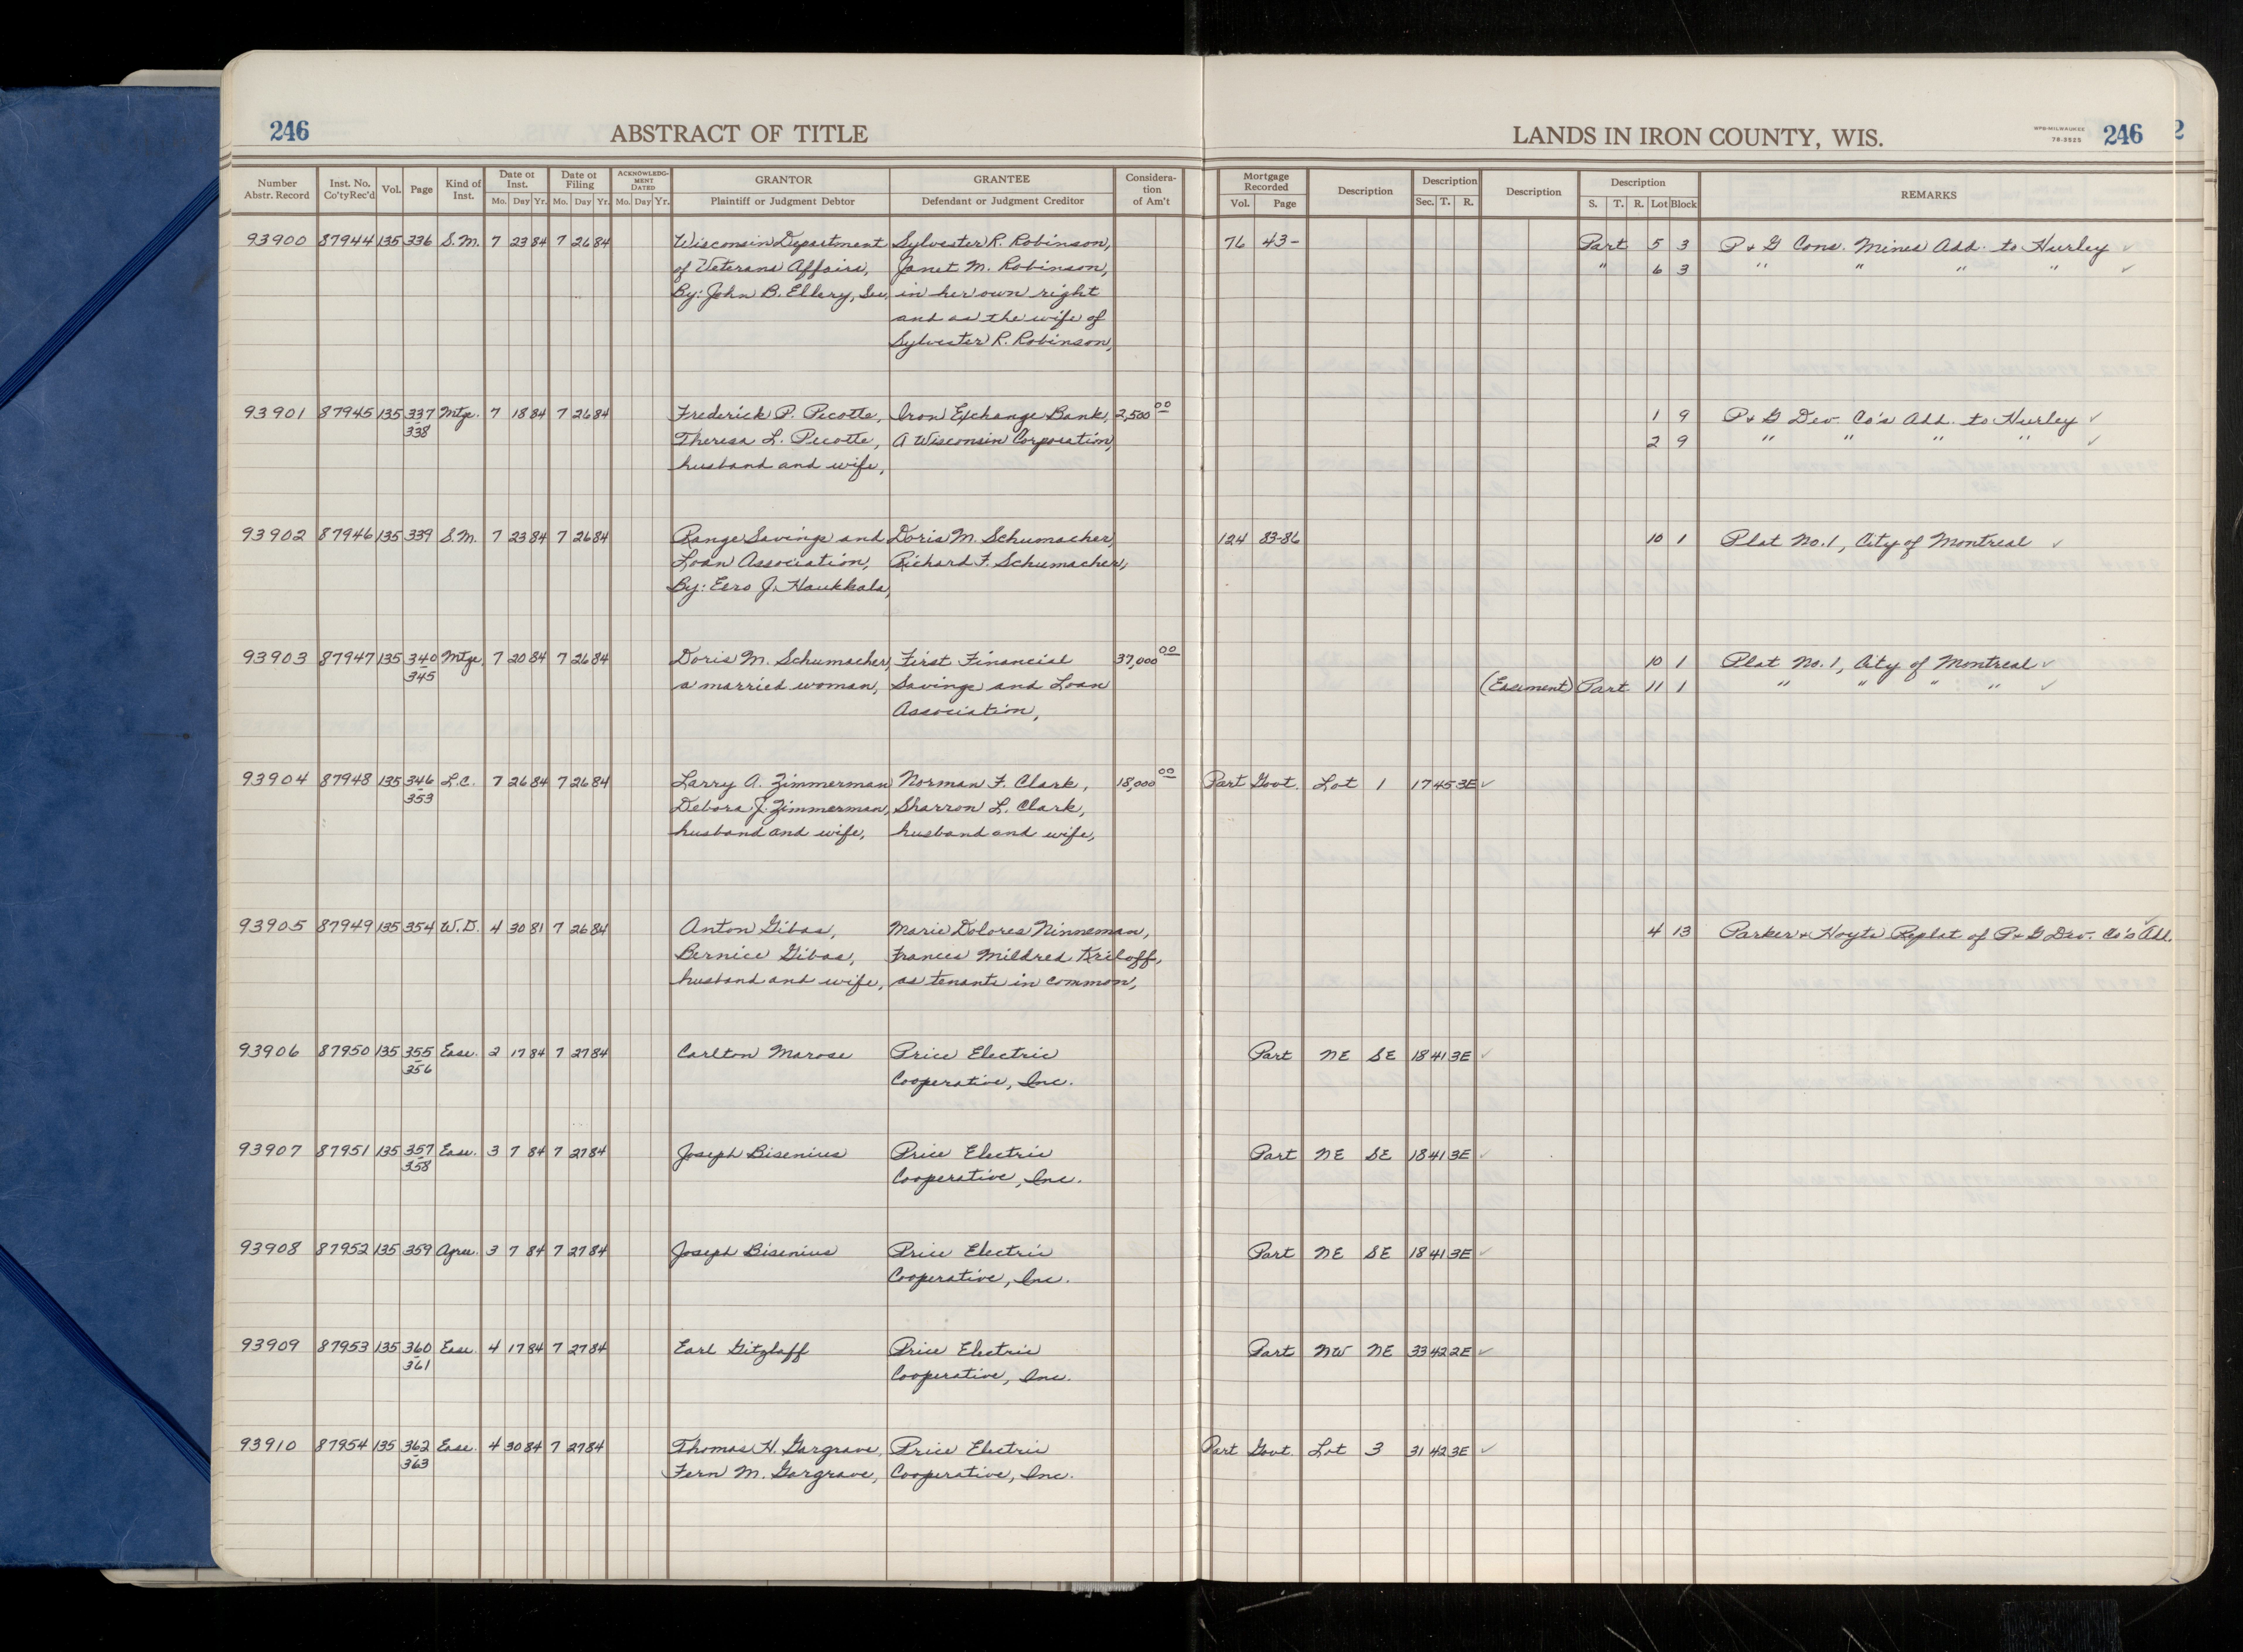 246 ABSTRACT OF TITLE LANDS IN IRON COUNTY, WIS. WPB-MILWAUKEE 78-3525 246 2
Number Abstr. Record Inst. No. Co'ty Rec'd Vol. Page Kind of Inst. Date of Inst. Mo. Day Yr. Date of Filing Mo. Day Yr. ACKNOWLEDGMENT DATED Mo. Day Yr. GRANTOR Plaintiff or Judgment Debtor GRANTEE Defendant or Judgment Creditor Consideration of Am't Mortgage Recorded Vol. Page Description Description Sec. T. R. Description Description S. T. R. Lot Block REMARKS
93900 87944 135 336 S.M. 7 23 84 7 26 84 Wisconsin Department Sylvester R. Robinson, 76 43- Part 5 3 P & G Cons. Mines Add. to Hurley ✓
of Veterans Affairs, Janet M. Robinson, " 6 3 " " " " ✓
By: John B. Ellery, Sec. in her own right
and as the wife of
Sylvester R. Robinson,
93901 87945 135 337 Mtge. 7 18 84 7 26 84 Frederick P. Pecotte, Iron Exchange Bank, 2,500 00 1 9 P & G Dev. Co's Add. to Hurley ✓
338 Theresa L. Pecotte, A Wisconsin Corporation, 2 9 " " " " ✓
husband and wife,
93902 87946 135 339 S.M. 7 23 84 7 26 84 Range Savings and Doris M. Schumacher, 124 83-86 10 1 Plat No. 1, City of Montreal ✓
Loan Association, Richard F. Schumacher,
By: Eero J. Haukkala,
93903 87947 135 340 Mtge. 7 20 84 7 26 84 Doris M. Schumacher, First Financial 37,000 00 10 1 Plat No. 1, City of Montreal ✓
345 a married woman, Savings and Loan (Easement) Part 11 1 " " " " ✓
Association,
93904 87948 135 346 L.C. 7 26 84 7 26 84 Larry A. Zimmerman Norman F. Clark, 18,000 00 Part Govt. Lot 1 17 45 3E ✓
353 Debora J. Zimmerman, Sharron L. Clark,
husband and wife, husband and wife,
93905 87949 135 354 W.D. 4 30 81 7 26 84 Anton Gibas, Marie Dolores Ninneman, 4 13 Parker & Hoyts Replat of P & G Dev. Co's Add. ✓
Bernice Gibas, Frances Mildred Kriloff,
husband and wife, as tenants in common,
93906 87950 135 355 Ease. 2 17 84 7 27 84 Carlton Marose Price Electric Part NE SE 18 41 3E ✓
356 Cooperative, Inc.
93907 87951 135 357 Ease. 3 7 84 7 27 84 Joseph Bisenius Price Electric Part NE SE 18 41 3E ✓
358 Cooperative, Inc.
93908 87952 135 359 Agree. 3 7 84 7 27 84 Joseph Bisenius Price Electric Part NE SE 18 41 3E ✓
Cooperative, Inc.
93909 87953 135 360 Ease. 4 17 84 7 27 84 Earl Gitzlaff Price Electric Part NW NE 33 42 2E ✓
361 Cooperative, Inc.
93910 87954 135 362 Ease. 4 30 84 7 27 84 Thomas H. Gargrave, Price Electric Part Govt. Lot 3 31 42 3E ✓
363 Fern M. Gargrave, Cooperative, Inc.